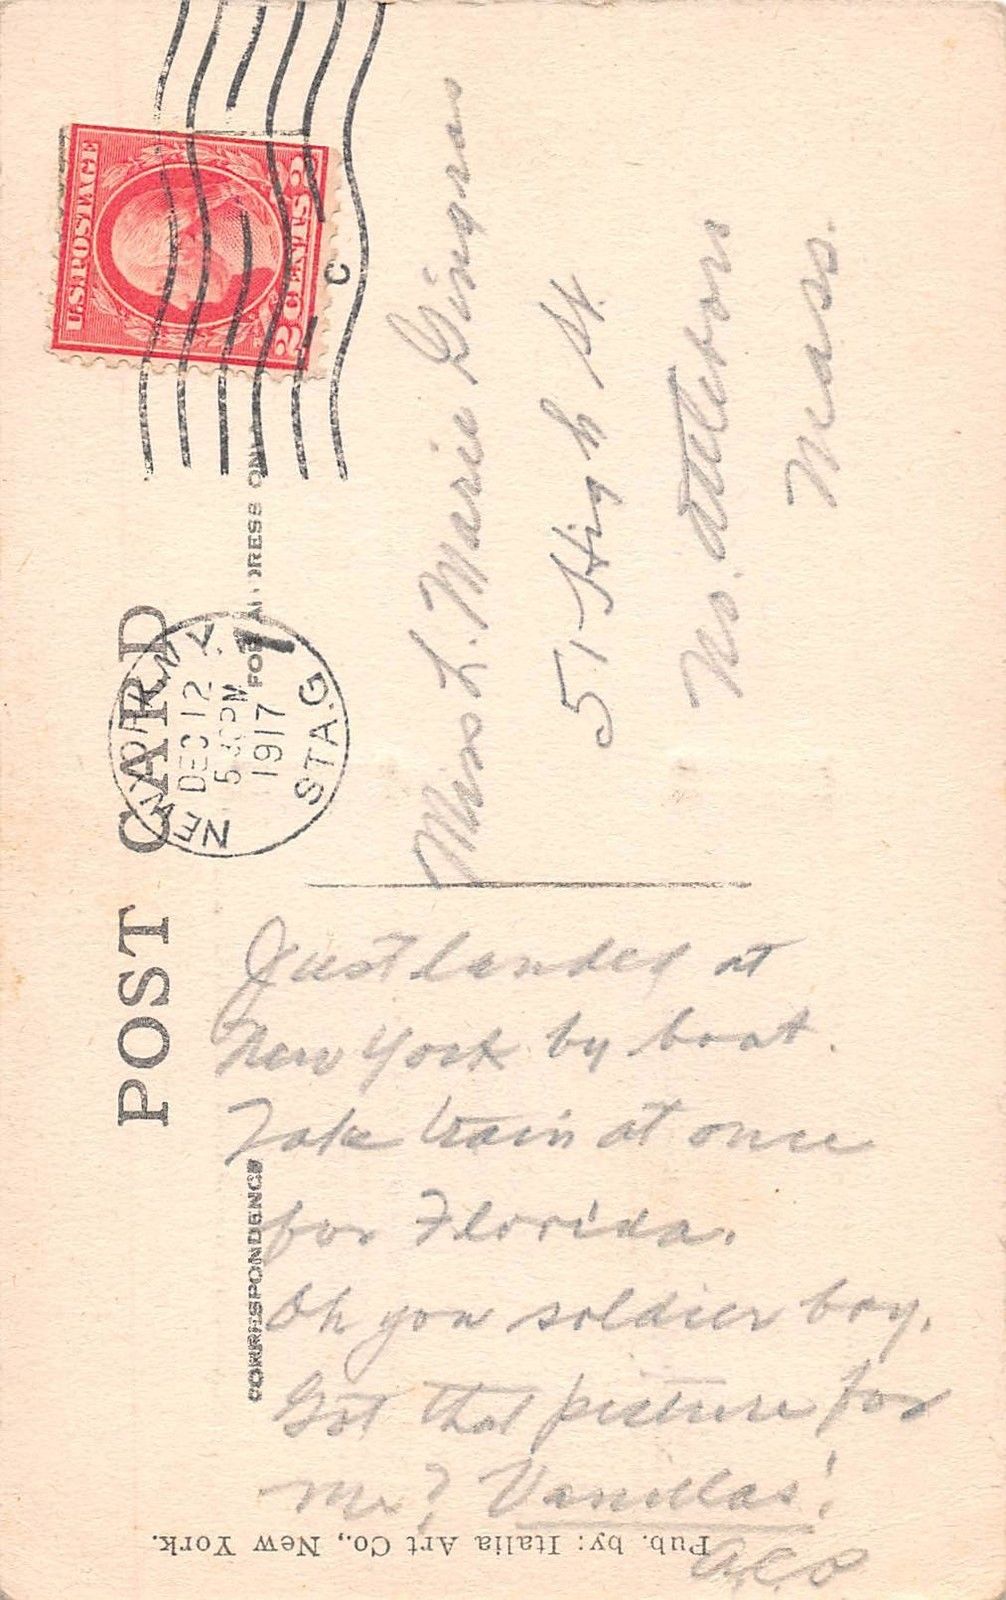 POST CARD
CORRESPONDENCE
FOR ADDRESS ONLY
U.S. POSTAGE
2 CENTS 2
C
NEW YORK, N.Y.
DEC 12
5 30PM
1917
STA.G
1
Just landed at
New York by boat.
Take train at once
for Florida.
Oh you soldier boy.
Got that picture for
me? Vanillas!
Miss L. Marie Gingras
51 High St.
No. Attleboro
Mass.
Pub. by: Italia Art Co., New York.